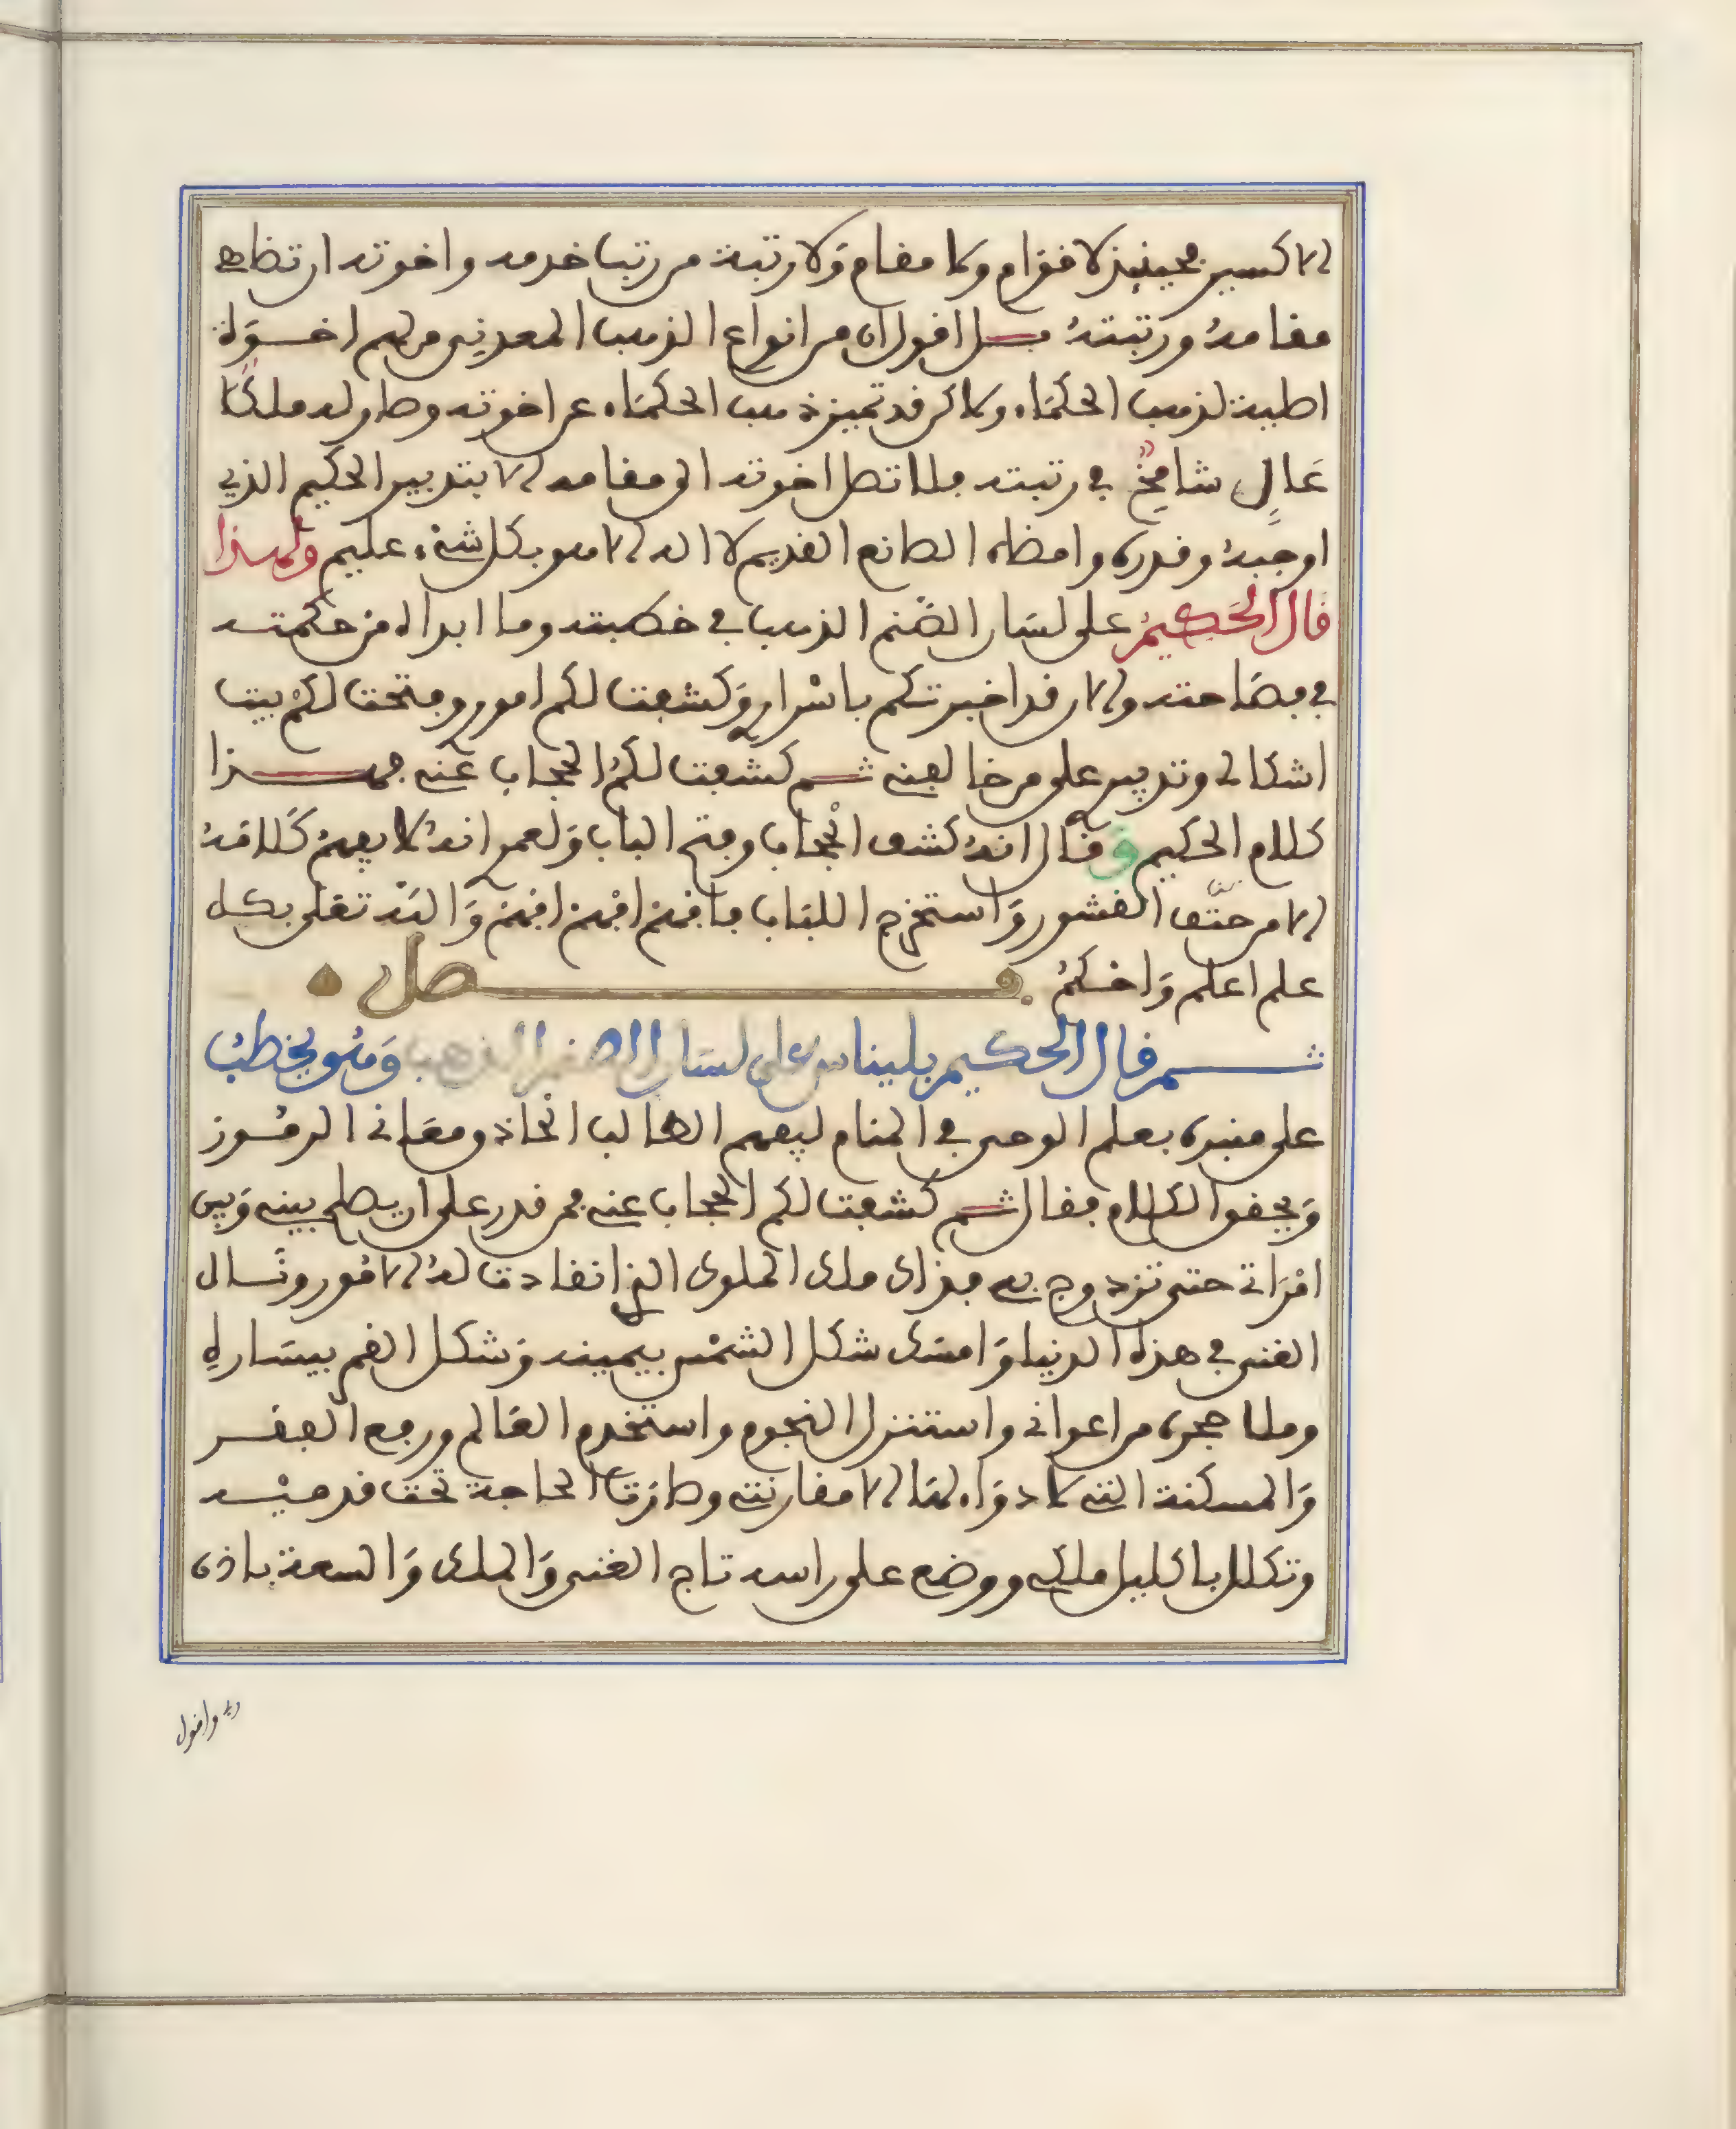 الاكسير فحينئذ لا قوام ولا مقام ولا رتبة من رتب خدمه واخوته ان تضاهي
مقامه ورتبته بل اقول ان من انواع الذهب المعدني من هم اخوة
اطيبة لذهب الحكماء ولاكن قد تميز ذهب الحكماء عن اخوته وصار له ملكا
عال شامخ في رتبته فلا تصل اخوته الى مقامه الا بتدبير الحكيم الذي
اوجبه وقدره وامضاه الصانع القديم لا اله الا هو بكل شيء عليم ولهذا
قال الحكيم على لسان الصنم الذهب في خطبته وما ابداه من حكمته
في فصاحته والان قد اخبرتكم باسرار وكشفت لكم امور وفتحت لكم بيت
اشكالي وتدبير على من خالفني ثم كشفت لكم الحجاب عني فهذا
كلام الحكيم وقال انه كشف الحجاب وفتح الباب ولعمر انه لا يفهم كلامه
الا من حتت القشور واستخرج اللباب فافهم افهم افهم والله تعلى بكل
علم اعلم واحكم فصل
ثم قال الحكيم بليناس على لسان الصنم الذهب وهو يخطب
على منبره بعلم الوحي في المنام ليفهم الطالب الحاذق معاني الرموز
ويحقق الكلام فقال ثم كشفت لكم الحجاب عني فمن قدر على ان يصلح بيني وبين
امراتي حتى تزدوج بي فذاك ملك الملوك الذي انقادت له الامور ونال
الغنى في هذه الدنيا وامسك شكل الشمس بيمينه وشكل القمر بيساره
وملا حجره من اعواني واستنزل النجوم واستخدم العالم ورفع الفقر
والمسكنة التي لا دواء لها الا مقارنتي وصارت الحاجة تحت قدميه
وتكلل باكليل ملكي ووضع على راسه تاج الغنى والملك والسعة باذن
ربي واقول